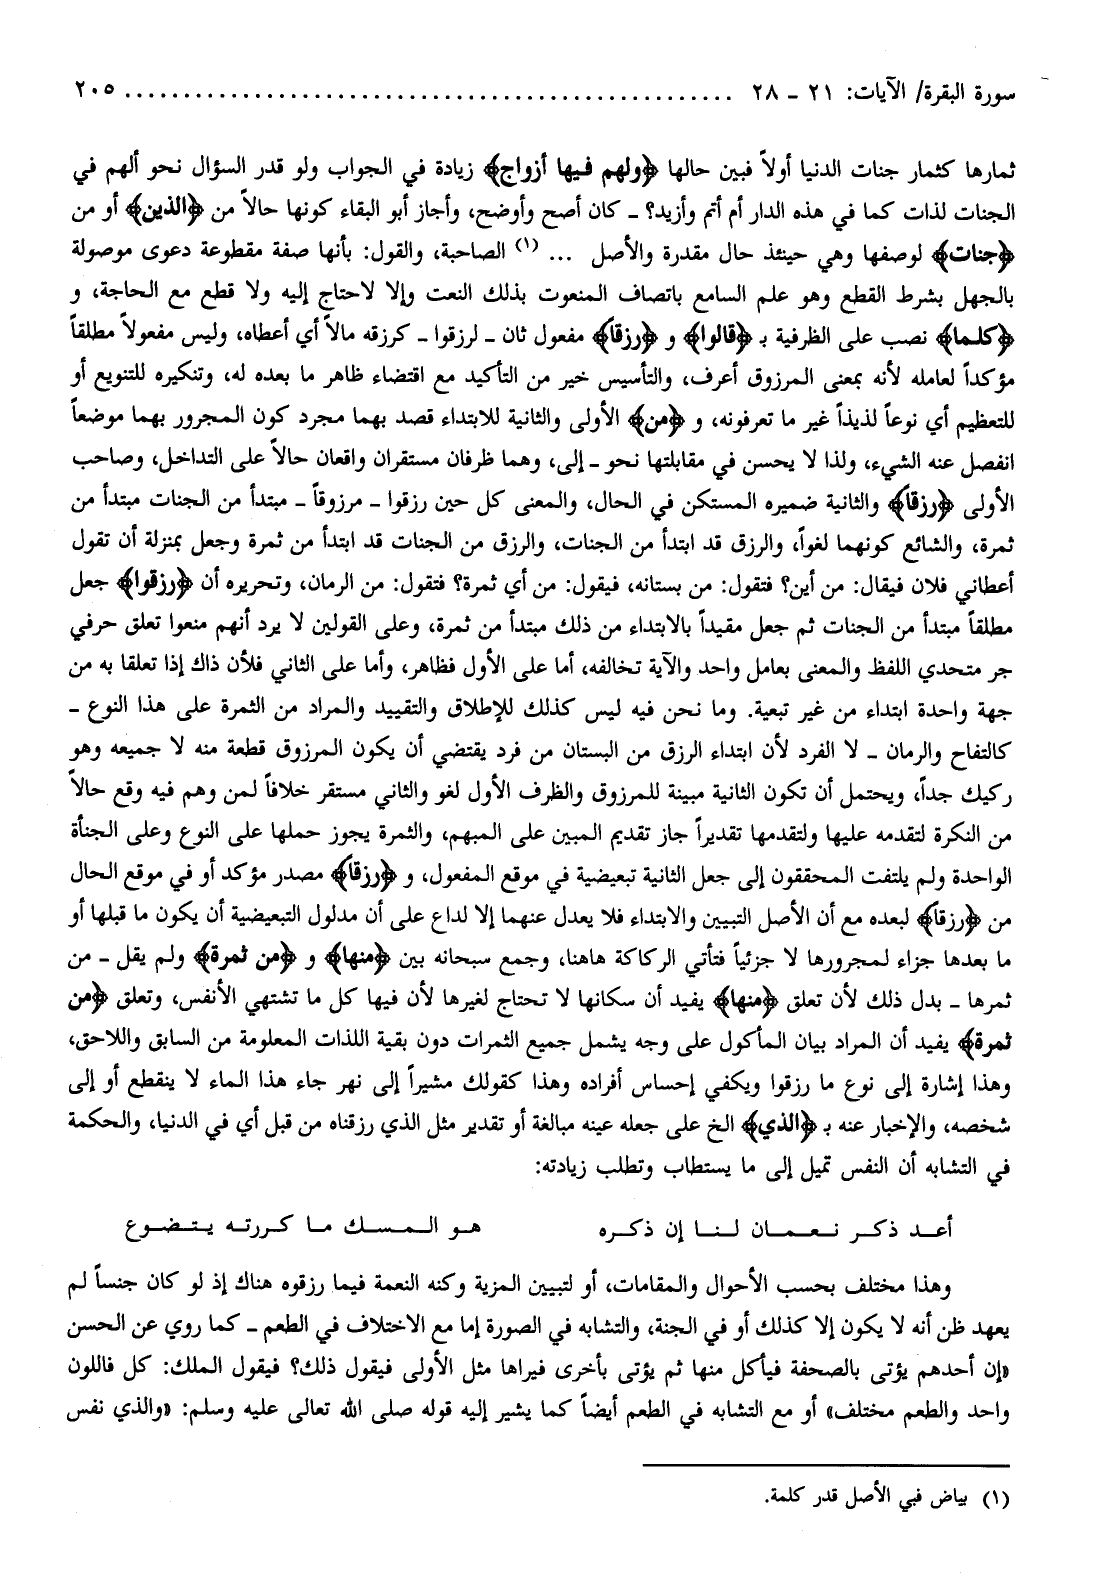 سورة البقرة/ الآيات: ٢١ ـ ٢٨ .................................................... ٢٠٥
ثمارها كثمار جنات الدنيا أولاً فبين حالها ﴿ولهم فيها أزواج﴾ زيادة في الجواب ولو قدر السؤال نحو ألهم في
الجنات لذات كما في هذه الدار أم أتم وأزيد؟ ـ كان أصح وأوضح، وأجاز أبو البقاء كونها حالاً من ﴿الذين﴾ أو من
﴿جنات﴾ لوصفها وهي حينئذ حال مقدرة والأصل ... (١) الصاحبة، والقول: بأنها صفة مقطوعة دعوى موصولة
بالجهل بشرط القطع وهو علم السامع باتصاف المنعوت بذلك النعت وإلا لاحتاج إليه ولا قطع مع الحاجة، و
﴿كلما﴾ نصب على الظرفية بـ ﴿قالوا﴾ و ﴿رزقاً﴾ مفعول ثان ـ لرزقوا ـ كرزقه مالاً أي أعطاه، وليس مفعولاً مطلقاً
مؤكداً لعامله لأنه بمعنى المرزوق أعرف، والتأسيس خير من التأكيد مع اقتضاء ظاهر ما بعده له، وتنكيره للتنويع أو
للتعظيم أي نوعاً لذيذاً غير ما تعرفونه، و ﴿من﴾ الأولى والثانية للابتداء قصد بهما مجرد كون المجرور بهما موضعاً
انفصل عنه الشيء، ولذا لا يحسن في مقابلتها نحو ـ إلى، وهما ظرفان مستقران واقعان حالاً على التداخل، وصاحب
الأولى ﴿رزقاً﴾ والثانية ضميره المستكن في الحال، والمعنى كل حين رزقوا ـ مرزوقاً ـ مبتدأ من الجنات مبتدأ من
ثمرة، والشائع كونهما لغواً، والرزق قد ابتدأ من الجنات، والرزق من الجنات قد ابتدأ من ثمرة وجعل بمنزلة أن تقول
أعطاني فلان فيقال: من أين؟ فتقول: من بستانه، فيقول: من أي ثمرة؟ فتقول: من الرمان، وتحريره أن ﴿رزقوا﴾ جعل
مطلقاً مبتدأ من الجنات ثم جعل مقيداً بالابتداء من ذلك مبتدأ من ثمرة، وعلى القولين لا يرد أنهم منعوا تعلق حرفي
جر متحدي اللفظ والمعنى بعامل واحد والآية تخالفه، أما على الأول فظاهر، وأما على الثاني فلأن ذاك إذا تعلقا به من
جهة واحدة ابتداء من غير تبعية. وما نحن فيه ليس كذلك للإطلاق والتقييد والمراد من الثمرة على هذا النوع ـ
كالتفاح والرمان ـ لا الفرد لأن ابتداء الرزق من البستان من فرد يقتضي أن يكون المرزوق قطعة منه لا جميعه وهو
ركيك جداً، ويحتمل أن تكون الثانية مبينة للمرزوق والظرف الأول لغو والثاني مستقر خلافاً لمن وهم فيه وقع حالاً
من النكرة لتقدمه عليها ولتقدمها تقديراً جاز تقديم المبين على المبهم، والثمرة يجوز حملها على النوع وعلى الجنأة
الواحدة ولم يلتفت المحققون إلى جعل الثانية تبعيضية في موقع المفعول، و ﴿رزقاً﴾ مصدر مؤكد أو في موقع الحال
من ﴿رزقا﴾ لبعده مع أن الأصل التبيين والابتداء فلا يعدل عنهما إلا لداع على أن مدلول التبعيضية أن يكون ما قبلها أو
ما بعدها جزاء لمجرورها لا جزئياً فتأتي الركاكة هاهنا، وجمع سبحانه بين ﴿منها﴾ و ﴿من ثمرة﴾ ولم يقل ـ من
ثمرها ـ بدل ذلك لأن تعلق ﴿منها﴾ يفيد أن سكانها لا تحتاج لغيرها لأن فيها كل ما تشتهي الأنفس، وتعلق ﴿من
ثمرة﴾ يفيد أن المراد بيان المأكول على وجه يشمل جميع الثمرات دون بقية اللذات المعلومة من السابق واللاحق،
وهذا إشارة إلى نوع ما رزقوا ويكفي إحساس أفراده وهذا كقولك مشيراً إلى نهر جاء هذا الماء لا ينقطع أو إلى
شخصه، والإخبار عنه بـ ﴿الذي﴾ الخ على جعله عينه مبالغة أو تقدير مثل الذي رزقناه من قبل أي في الدنيا، والحكمة
في التشابه أن النفس تميل إلى ما يستطاب وتطلب زيادته:
أعد ذكر نعمان لنا إن ذكره هو المسك ما كررته يتضوع
وهذا مختلف بحسب الأحوال والمقامات، أو لتبيين المزية وكنه النعمة فيما رزقوه هناك إذ لو كان جنساً لم
يعهد ظن أنه لا يكون إلا كذلك أو في الجنة، والتشابه في الصورة إما مع الاختلاف في الطعم ـ كما روي عن الحسن
«إن أحدهم يؤتى بالصحفة فيأكل منها ثم يؤتى بأخرى فيراها مثل الأولى فيقول ذلك؟ فيقول الملك: كل فاللون
واحد والطعم مختلف» أو مع التشابه في الطعم أيضاً كما يشير إليه قوله صلى الله تعالى عليه وسلم: «والذي نفس
(١) بياض فبي الأصل قدر كلمة.